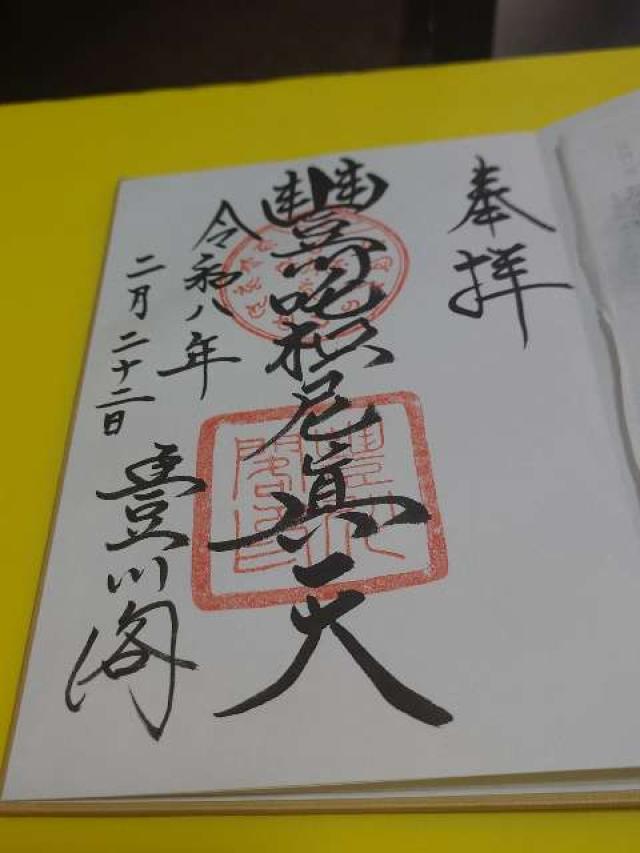 奉拝
豐川吒枳尼眞天
令和八年
二月二十二日
豊川閣